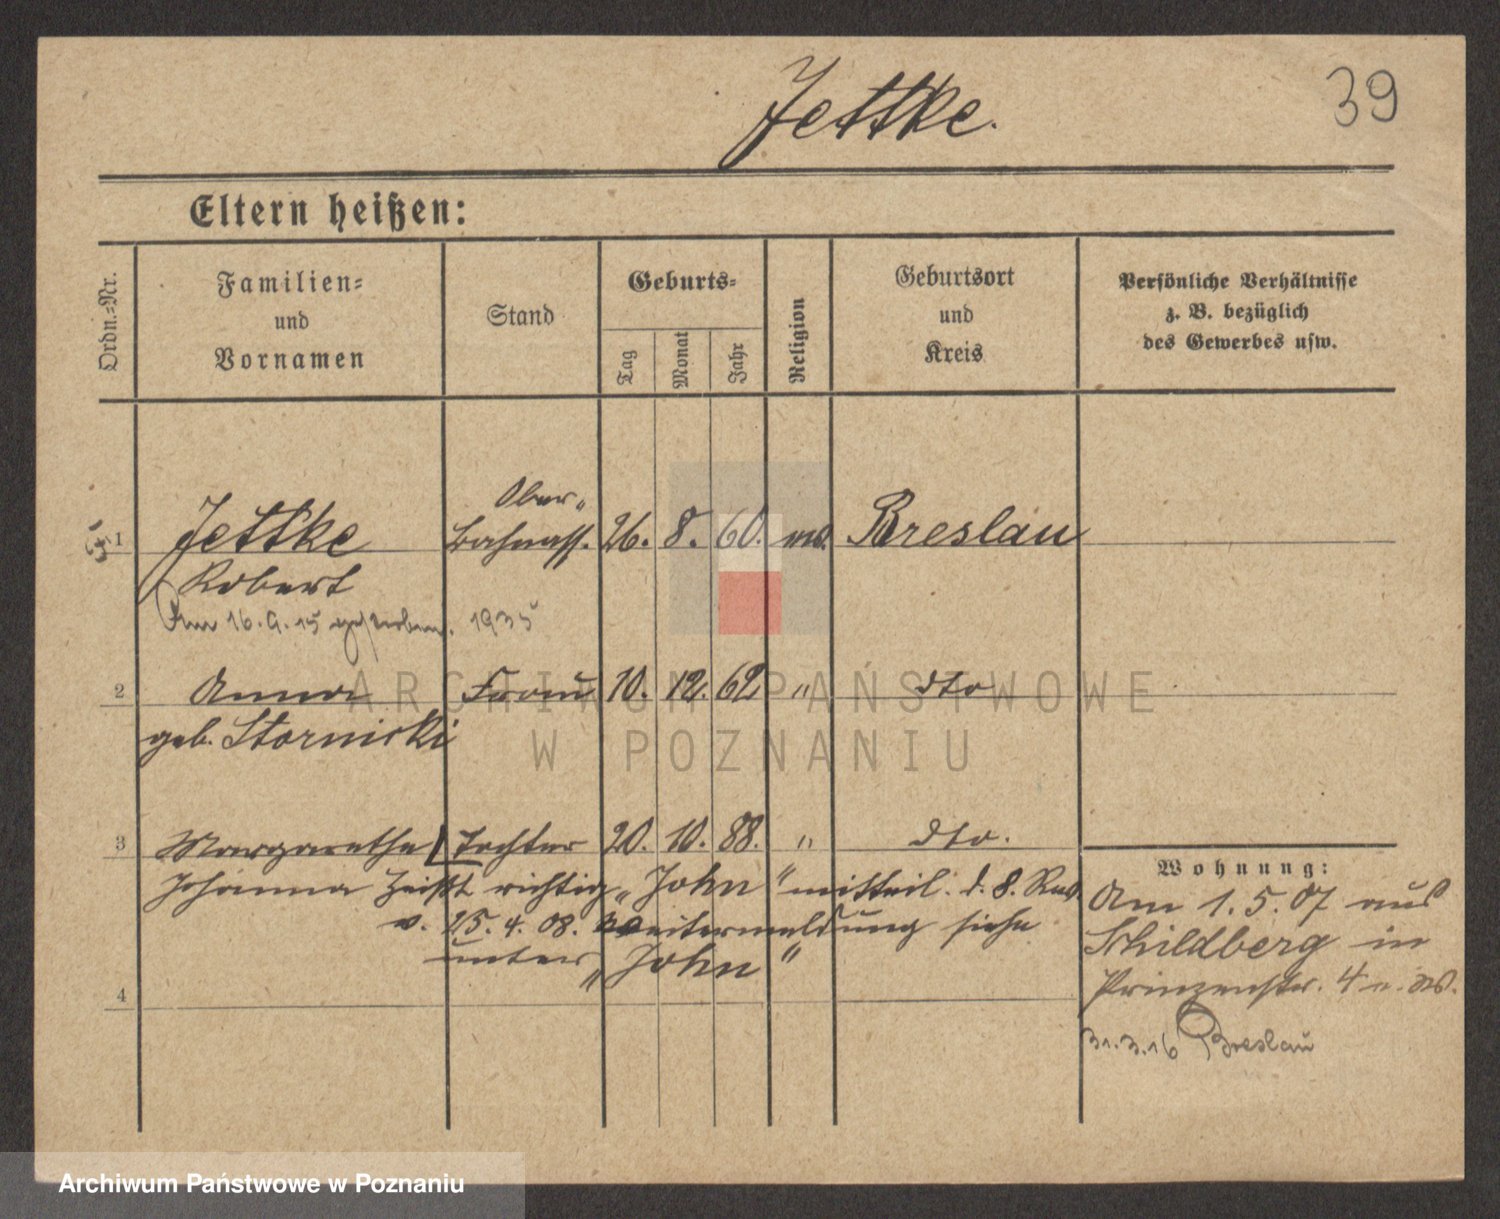 39
Jettke.
Eltern heißen:
Ordn.=Nr.
Familien=
und
Vornamen
Stand
Geburts=
Tag
Monat
Jahr
Religion
Geburtsort
und
Kreis
Persönliche Verhältnisse
z. B. bezüglich
des Gewerbes usw.
1 Jettke Ober„ Bahnass. 26. 8. 60. Breslau
Robert
Am 16.9.15 gestorben. 1935
2 Anna Frau 10. 12. 62 " dto
geb. Storniski
3 Margarethe Tochter 20. 10. 88. " dto.
Johanna heißt richtig „John“ mitteil. d. 8. Rev.
v. 25.4.08. Weitermeldung siehe
unter „John“
4
Wohnung:
Am 1.5.07 aus
Schildberg in
Prinzenstr. 4
31.3.16 Breslau
ARCHIWUM PAŃSTWOWE
W POZNANIU
Archiwum Państwowe w Poznaniu